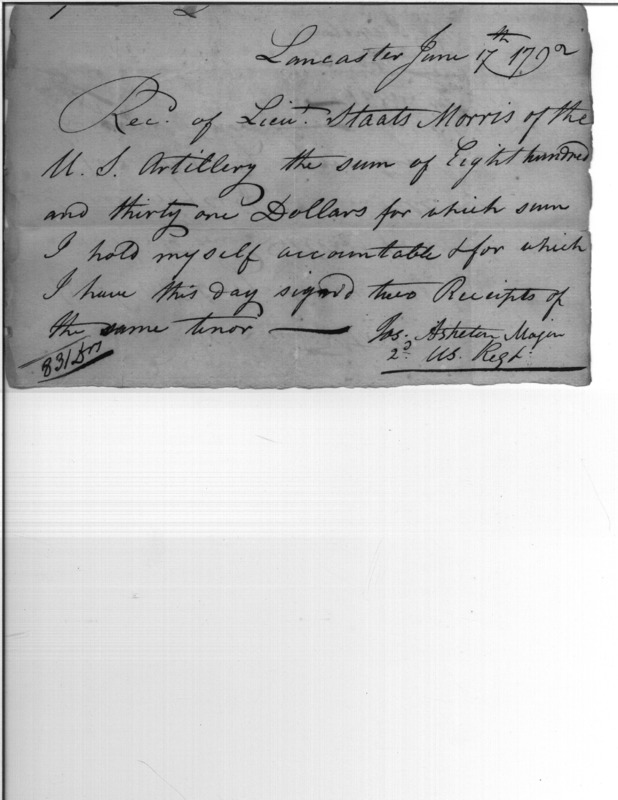 Lancaster June 17th 1792
Rec.d of Lieut. Staats Morris of the
U. S. Artillery the sum of Eight hundred
and thirty one Dollars for which sum
I hold myself accountable & for which
I have this day signed two Receipts of
the same tenor —
Jos. Asheton Major
2d. US. Regt.
831 Drs